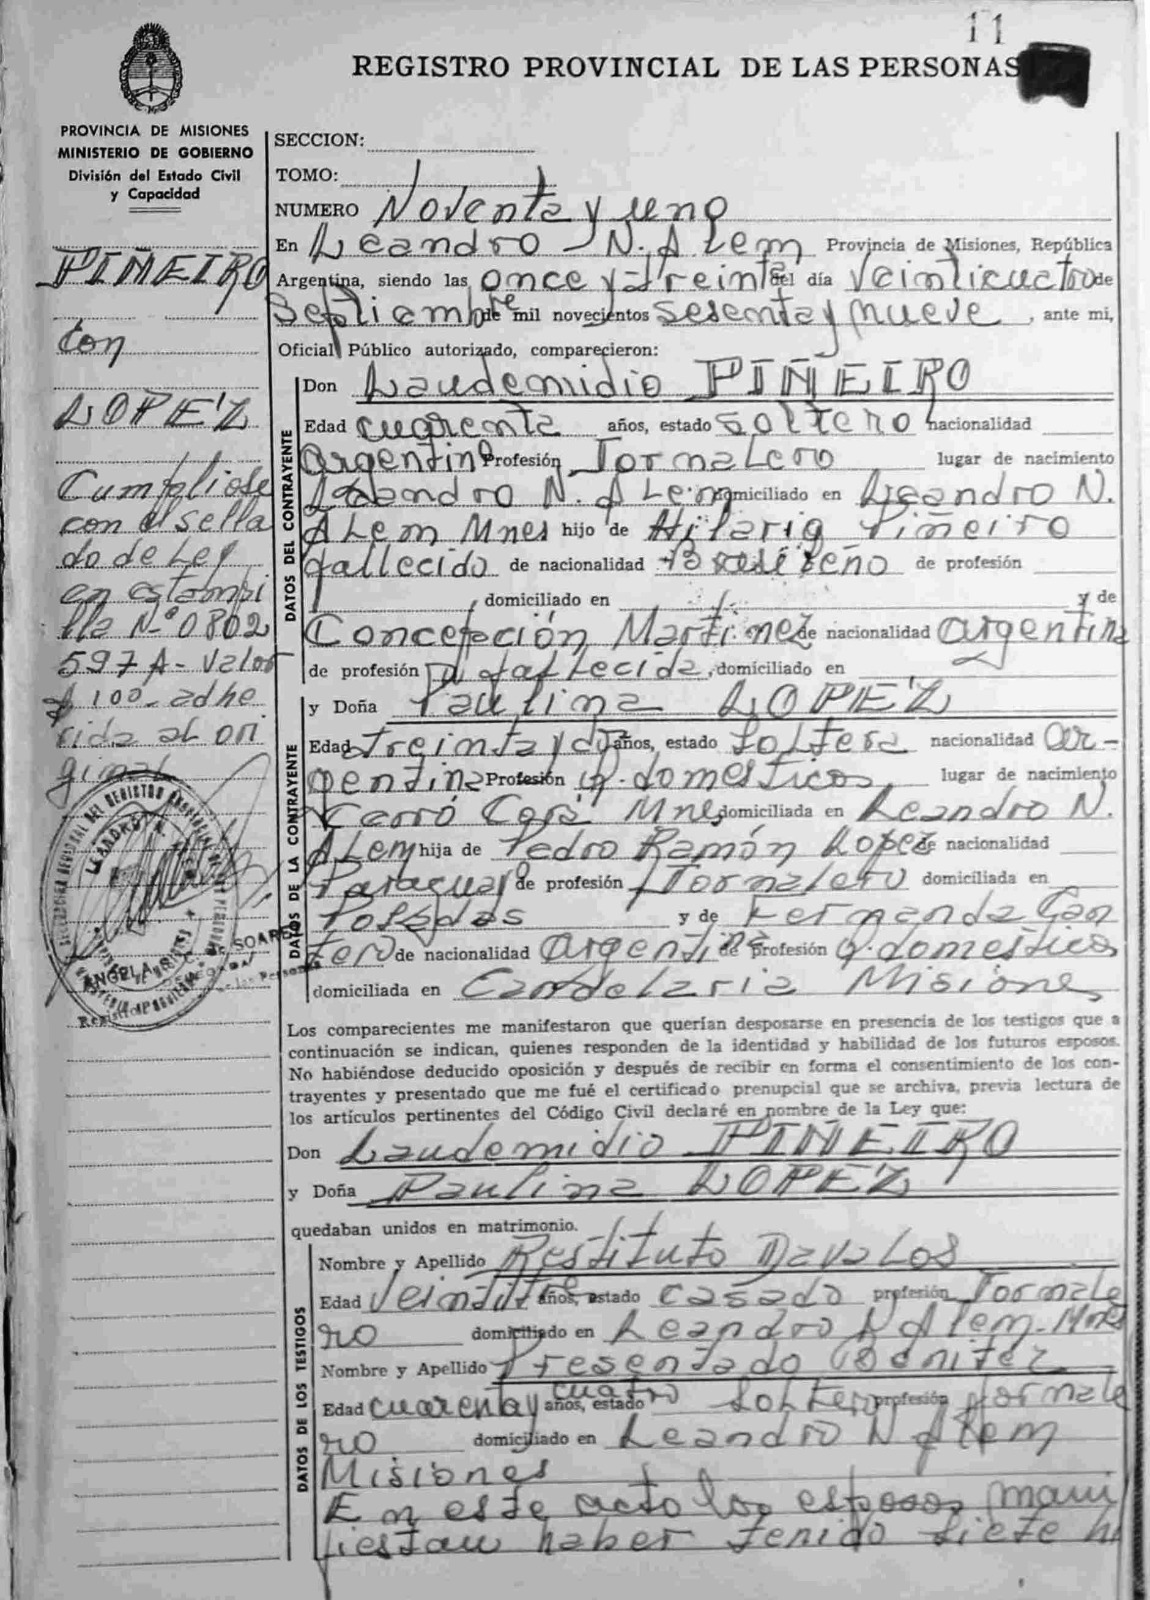 11
REGISTRO PROVINCIAL DE LAS PERSONAS
PROVINCIA DE MISIONES
MINISTERIO DE GOBIERNO
División del Estado Civil
y Capacidad
PIÑEIRO
con
LOPEZ
Cumpliose
con el sella
do de Ley
en estampi
lla Nº 0802
597 A - Valor
$ 100.- adhe
rida al ori
ginal
SECCION:
TOMO:
NUMERO Noventa y uno
En Leandro N. Alem Provincia de Misiones, República
Argentina, siendo las once y treinta del día veinticuatro de
Septiembre de mil novecientos sesenta y nueve, ante mi,
Oficial Público autorizado, comparecieron:
DATOS DEL CONTRAYENTE
Don Laudemidio PIÑEIRO
Edad cuarenta años, estado soltero nacionalidad
argentino Profesión Jornalero lugar de nacimiento
Leandro N. Alem domiciliado en Leandro N.
Alem Mnes hijo de Hilario Piñeiro
fallecido de nacionalidad de profesión
, domiciliado en y de
Concepción Martinez de nacionalidad argentina
de profesión fallecida, domiciliado en
DATOS DE LA CONTRAYENTE
y Doña Paulina LOPEZ
Edad treinta y dos años, estado soltera nacionalidad ar-
gentina Profesión q. domesticos lugar de nacimiento
Cerró Corá Mnes domiciliada en Leandro N.
Alem hija de Pedro Ramón Lopez de nacionalidad
Paraguay de profesión Jornalero domiciliada en
Posadas y de Fernanda Can
tero de nacionalidad argentina de profesión q. domestico
domiciliada en Candelaria Misiones
Los comparecientes me manifestaron que querían desposarse en presencia de los testigos que a
continuación se indican, quienes responden de la identidad y habilidad de los futuros esposos.
No habiéndose deducido oposición y después de recibir en forma el consentimiento de los con-
trayentes y presentado que me fué el certificado prenupcial que se archiva, previa lectura de
los artículos pertinentes del Código Civil declaré en nombre de la Ley que:
Don Laudemidio PIÑEIRO
y Doña Paulina LOPEZ
quedaban unidos en matrimonio.
DATOS DE LOS TESTIGOS
Nombre y Apellido Restituto Davalos
Edad veintitre años, estado casado profesión Jornale
ro domiciliado en Leandro N Alem - Mnes
Nombre y Apellido Presentado Benitez
Edad cuarenta y cuatro años, estado soltero profesión jornale
ro domiciliado en Leandro N Alem
Misiones
En este acto los esposos mani
fiestan haber tenido siete hi